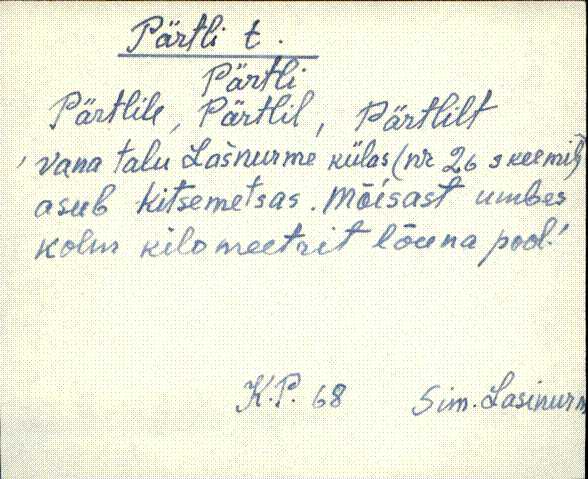 Pärtli t.
Pärtli
Pärtlile, Pärtlil, Pärtlilt
'vana talu Lašnurme külas (nr 26 skeemil)
asub Kitsemetsas. Mõisast umbes
kolm kilomeetrit lõuna pool.'
K.P. 68 Sim. Lasinurm